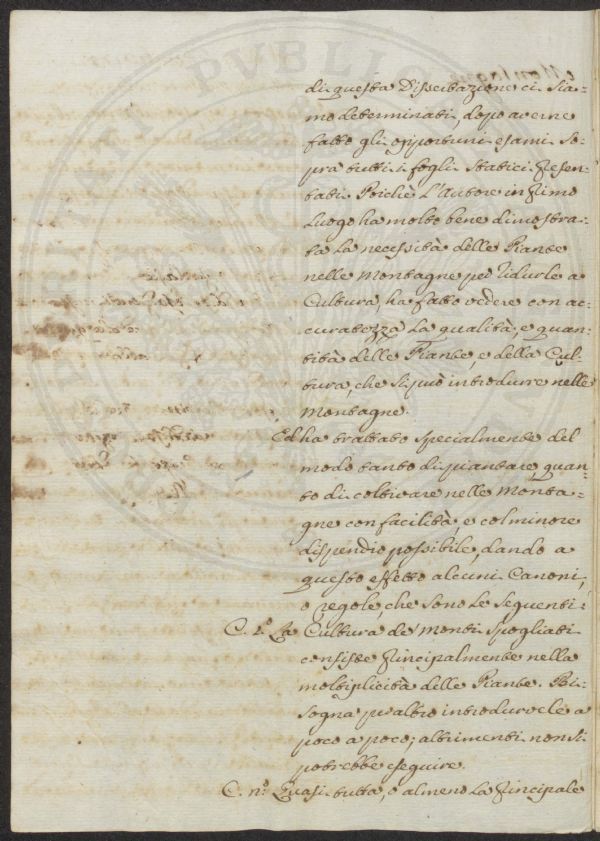 di questa Dissertazione ci sia-
mo determinati, dopo averne
fatto gli opportuni esami so-
pra tutti i fogli statici presen-
tati. Poichè L'Autore in primo
Luogo ha molto bene dimostra-
ta La necessità delle Piante
nelle Montagne per ridurle a
Cultura, ha fatto vedere con ac-
curatezza La qualità, e quan-
tità delle Piante, e della Cul-
tura, che si può introdurre nelle
Montagne.
Ed ha trattato specialmente del
modo tanto di piantare, quan-
to di coltivare nelle Monta-
gne con facilità, e col minore
dispendio possibile, dando a
questo effetto alcuni Canoni,
o regole, che sono Le seguenti:
C. 1.º La Cultura de' Monti spogliati
consiste principalmente nella
moltiplicità delle Piante. Bi-
sogna per altro introdurvele a
poco a poco; altrimenti non si
potrebbe eseguire.
C. n.º Quasi tutta, o almeno La principale